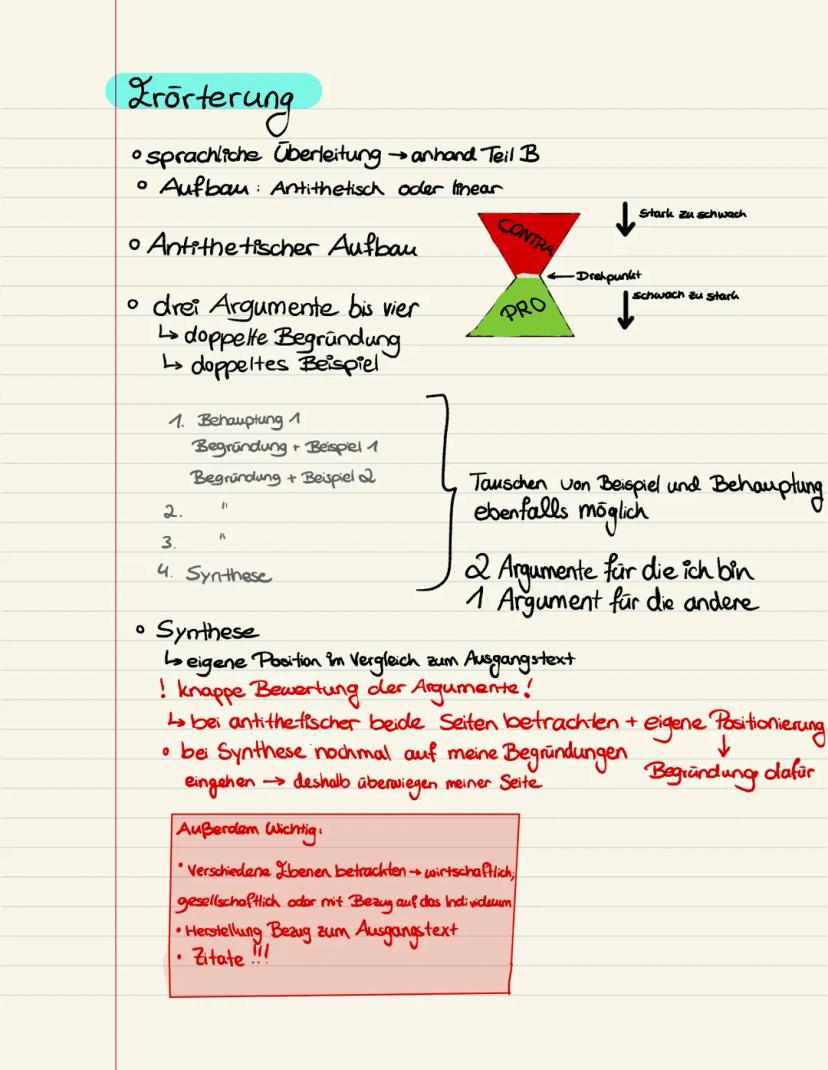 Erörterung
° sprachliche Überleitung → anhand Teil B
° Aufbau: Antithetisch oder linear
° Antithetischer Aufbau
CONTRA
↓ Stark zu schwach
← Drehpunkt
PRO
↓ schwach zu stark
° drei Argumente bis vier
↳ doppelte Begründung
↳ doppeltes Beispiel
1. Behauptung 1
Begründung + Beispiel 1
Begründung + Beispiel 2
2. "
3. "
4. Synthese
Tauschen von Beispiel und Behauptung
ebenfalls möglich
2 Argumente für die ich bin
1 Argument für die andere
° Synthese
↳ eigene Position im Vergleich zum Ausgangstext
! knappe Bewertung der Argumente!
↳ bei antithetischer beide Seiten betrachten + eigene Positionierung
↓
Begründung dafür
° bei Synthese nochmal auf meine Begründungen
eingehen → deshalb überwiegen meiner Seite
Außerdem Wichtig:
• Verschiedene Ebenen betrachten → wirtschaftlich,
gesellschaftlich oder mit Bezug auf das Individuum
• Herstellung Bezug zum Ausgangstext
• Zitate !!!